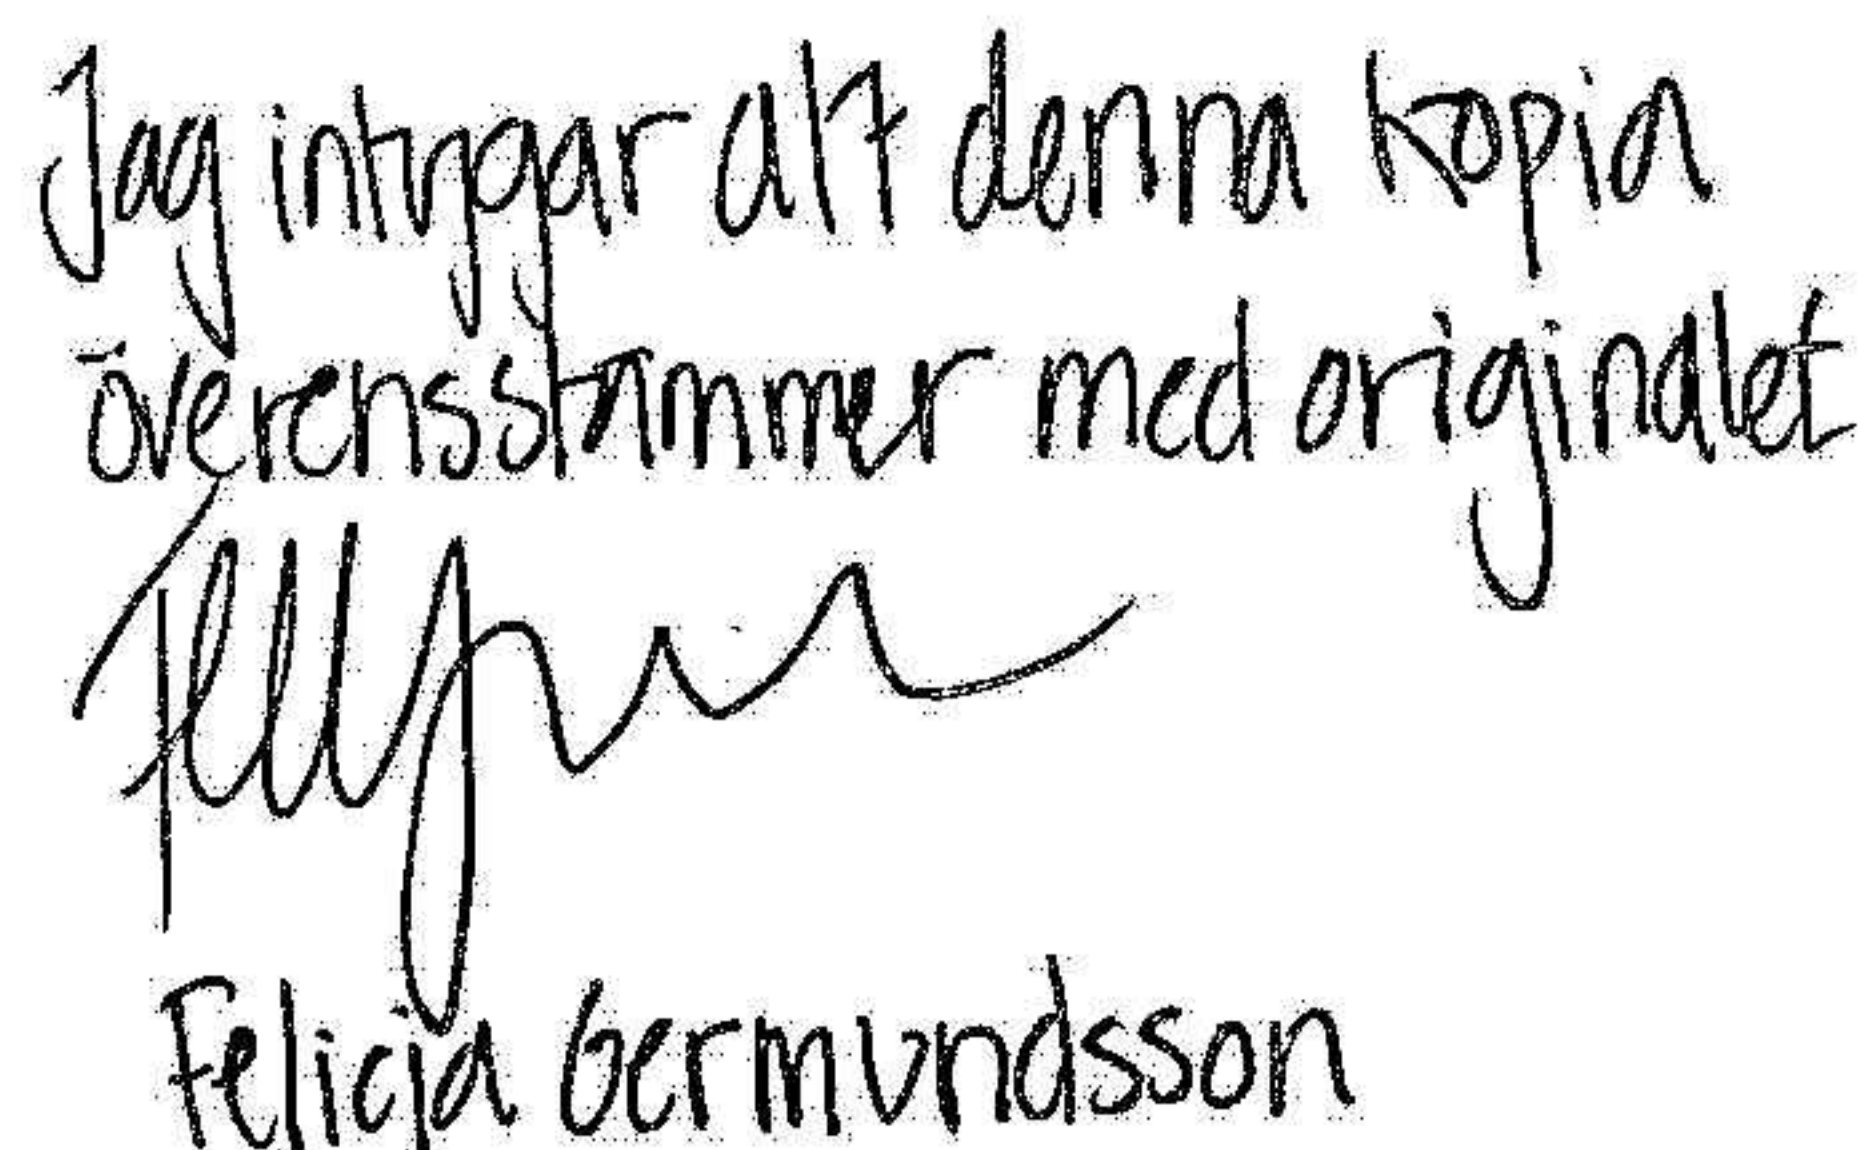 Jag intygar att denna kopia
överensstämmer med originalet
Felicia Germundsson